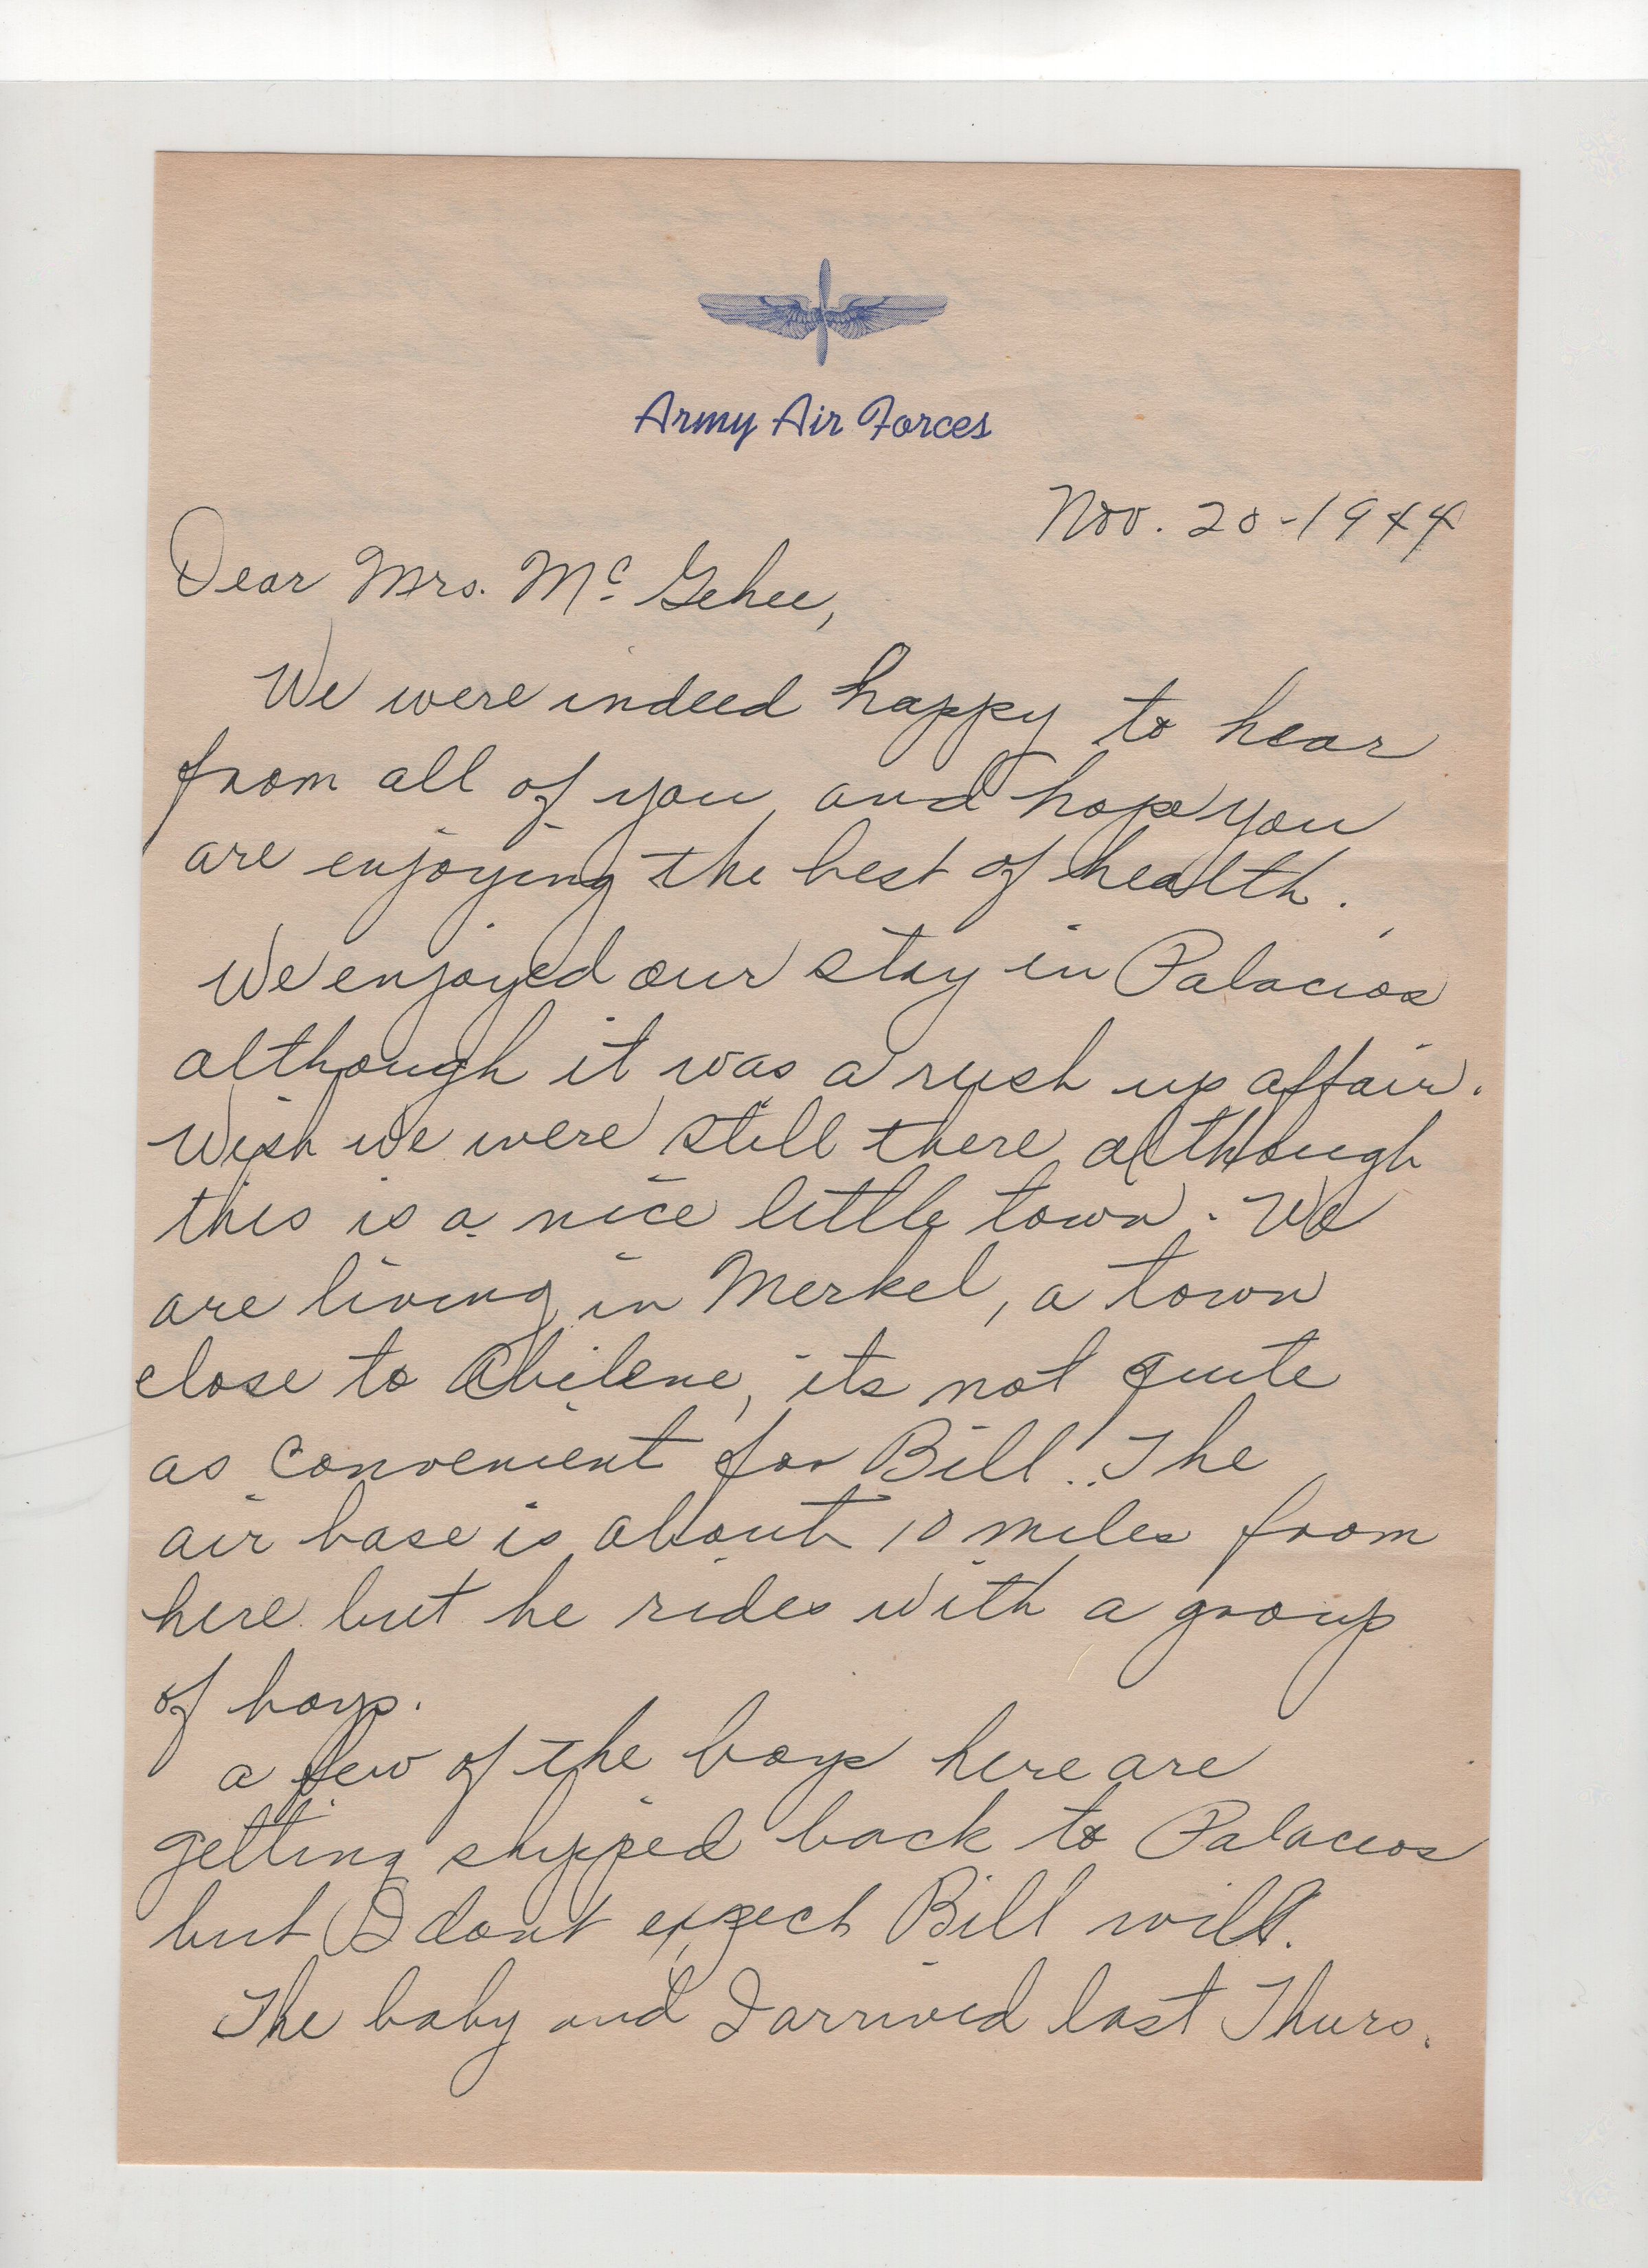 Army Air Forces
Nov. 20-1944
Dear Mrs. McGehee,
We were indeed happy to hear
from all of you and hope you
are enjoying the best of health.
We enjoyed our stay in Palacios
although it was a rush up affair.
Wish we were still there although
this is a nice little town. We
are living in Merkel, a town
close to Abilene, its not quite
as convenient for Bill. The
air base is about 10 miles from
here but he rides with a group
of boys.
a few of the boys here are
getting shipped back to Palacios
but I dont expect Bill will.
The baby and I arrived last Thurs.